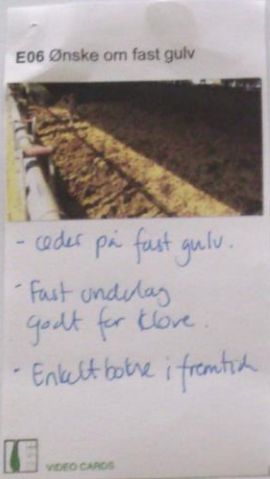 E06 Ønske om fast gulv
- æder på fast gulv.
- Fast underlag
godt for klove.
- Enkelt bokse i fremtid
VIDEO CARDS